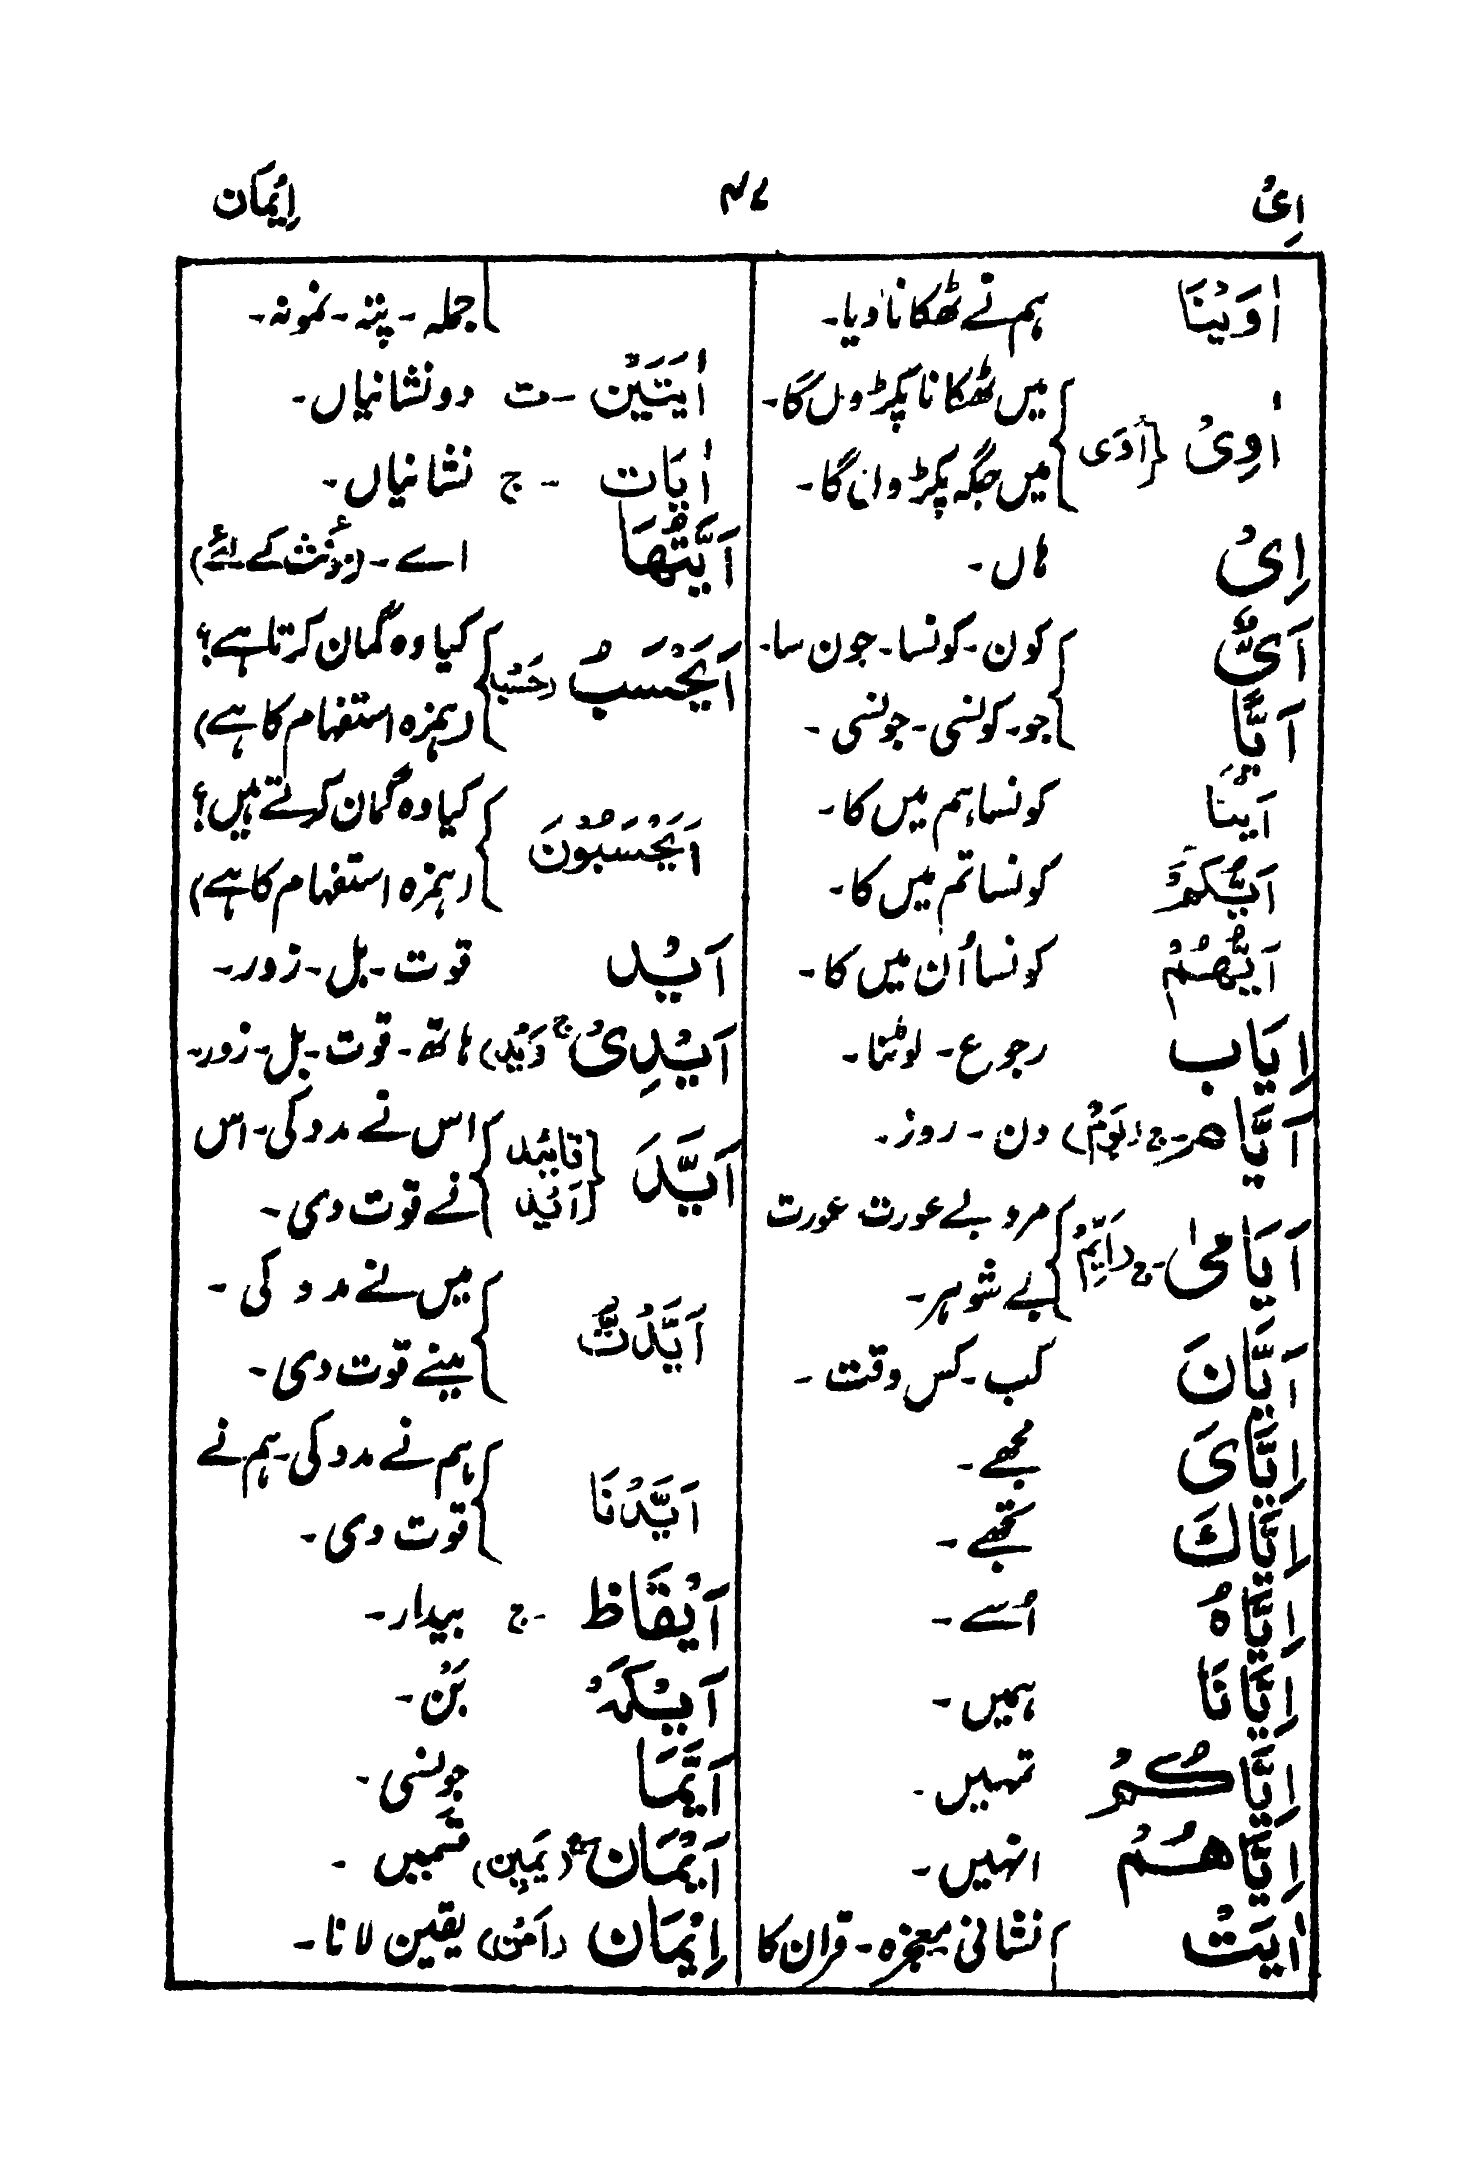 اِیْ ۴۷ اِیْمَان
اٰوَیْنَا ہم نے ٹھکانا دیا۔
اٰوِیْ {اَوَی} میں ٹھکانا پکڑوں گا۔
میں جگہ پکڑوں گا۔
اِیْ ہاں۔
اَیُّ کون۔ کونسا۔ جون سا۔
اَیًّا جو۔ کونسی۔ جونسی۔
اَیُّنَا کونسا ہم میں کا۔
اَیُّکُمْ کونسا تم میں کا۔
اَیُّھُمْ کونسا اُن میں کا۔
اِیَاب رجوع۔ لوٹنا۔
اَیَّام۔ ج (یَوْمٌ) دن۔ روز۔
اَیَامٰی۔ ج (اَیِّمٌ) مرد بے عورت عورت
بے شوہر۔
اَیَّانَ کب۔ کس وقت۔
اِیَّایَ مجھے۔
اِیَّاكَ تجھے۔
اِیَّاہُ اُسے۔
اِیَّانَا ہمیں۔
اِیَّاکُمْ تمہیں۔
اِیَّاھُمْ انہیں۔
اٰیَتْ نشانی معجزہ۔ قرآن کا
جملہ۔ پتہ۔ نمونہ۔
اٰیَتَیْنِ ۔ت دو نشانیاں۔
اٰیَات ۔ ج نشانیاں۔
اَیَّتُھَا اے۔ (مؤنث کے لئے)
اَیَحْسَبُ (حَسْب) کیا وہ گمان کرتا ہے؟
(ہمزہ استفہام کا ہے)
اَیَحْسَبُوْنَ کیا وہ گمان کرتے ہیں؟
(ہمزہ استفہام کا ہے)
اَیْد قوت۔ بل۔ زور۔
اَیْدِیْ ج (یَدٌ) ہاتھ۔ قوت۔ بل۔ زور۔
اَیَّدَ {تایید اَیْد} اس نے مدد کی۔ اس
نے قوت دی۔
اَیَّدْتُّ میں نے مدد کی۔
مینے قوت دی۔
اَیَّدْنَا ہم نے مدد کی۔ ہم نے
قوت دی۔
اَیْقَاظ ۔ ج بیدار۔
اَیْکَہْ بَنْ۔
اَیَّمَا جونسی۔
اَیْمَان ج (یَمِیْن) قسمیں۔
اِیْمَان (اَمْن) یقین لانا۔